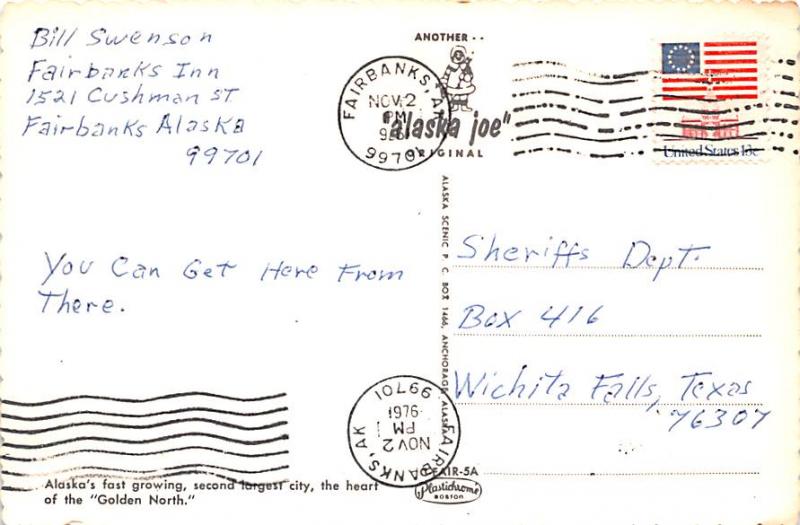 Bill Swenson
Fairbanks Inn
1521 Cushman ST
Fairbanks Alaska
99701
ANOTHER
"alaska joe"
ORIGINAL
FAIRBANKS, AK
NOV 2
PM
1976
99701
United States 13c
You Can Get Here From
There.
ALASKA SCENIC P. C. BOX 1466, ANCHORAGE, ALASKA
Sheriffs Dept.
Box 416
Wichita Falls, Texas
76307
FAIRBANKS, AK
NOV 2
PM
1976
99701
Alaska's fast growing, second largest city, the heart
of the "Golden North."
FAIR-5A
Plastichrome
BOSTON